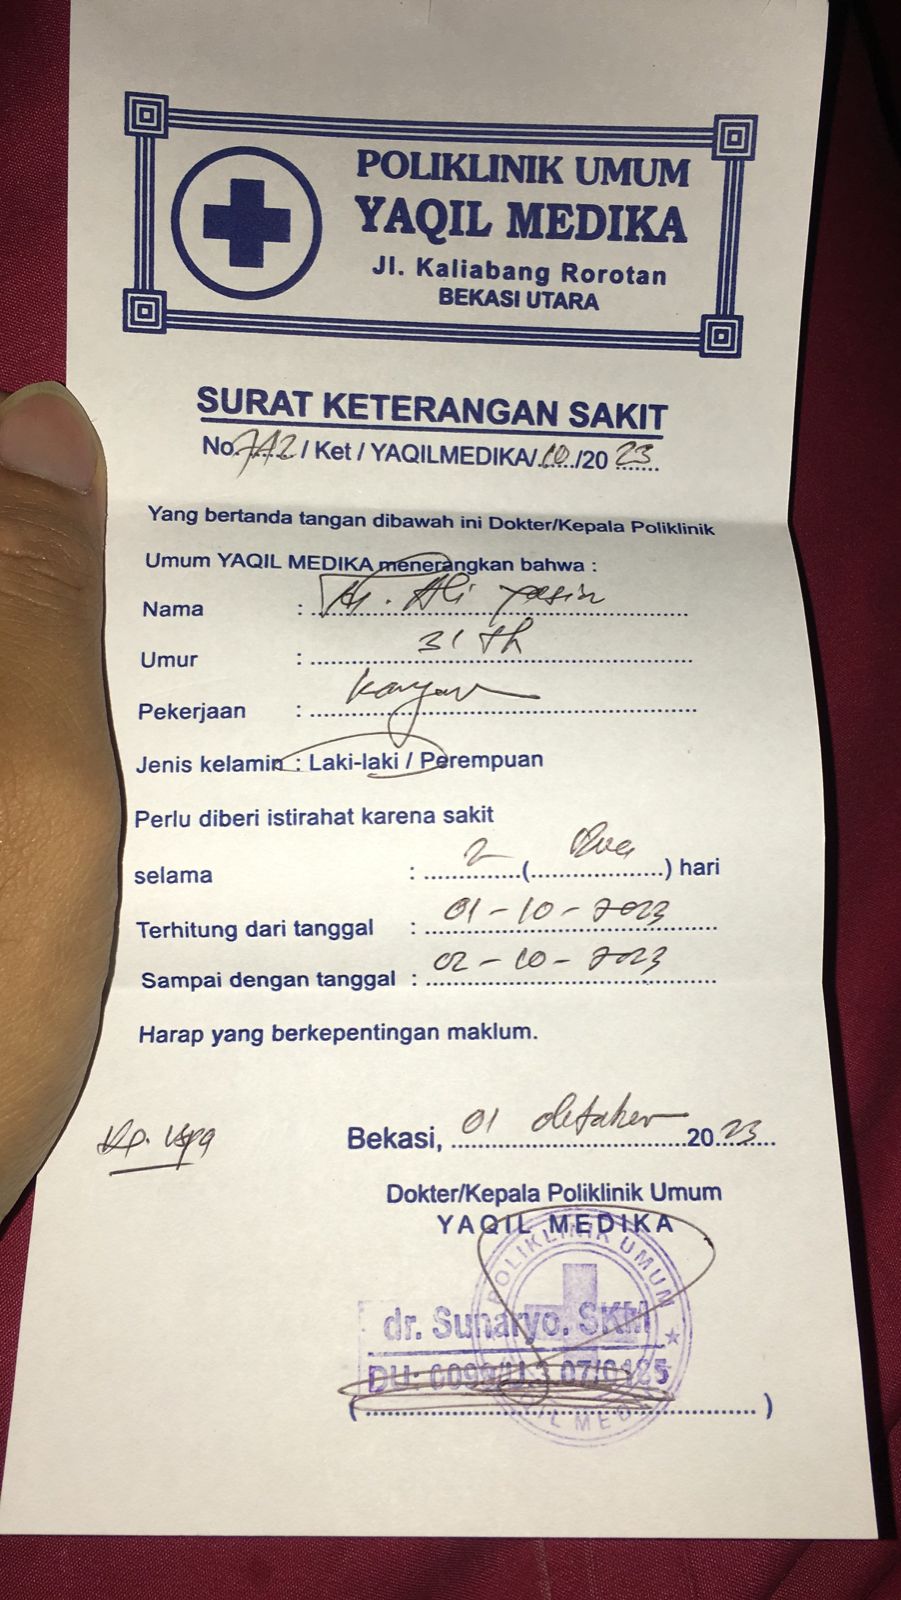 POLIKLINIK UMUM
YAQIL MEDIKA
Jl. Kaliabang Rorotan
BEKASI UTARA
SURAT KETERANGAN SAKIT
No. 742 / Ket / YAQILMEDIKA/ 10 /20 23
Yang bertanda tangan dibawah ini Dokter/Kepala Poliklinik
Umum YAQIL MEDIKA menerangkan bahwa :
Nama : Ali Yasin
Umur : 31 th
Pekerjaan :
Jenis kelamin : Laki-laki / Perempuan
Perlu diberi istirahat karena sakit
selama : 2 ( Dua ) hari
Terhitung dari tanggal : 01-10-2023
Sampai dengan tanggal : 02-10-2023
Harap yang berkepentingan maklum.
Bekasi, 01 Oktober 2023
Dokter/Kepala Poliklinik Umum
YAQIL MEDIKA
POLIKLINIK UMUM
dr. Sunaryo. SKM